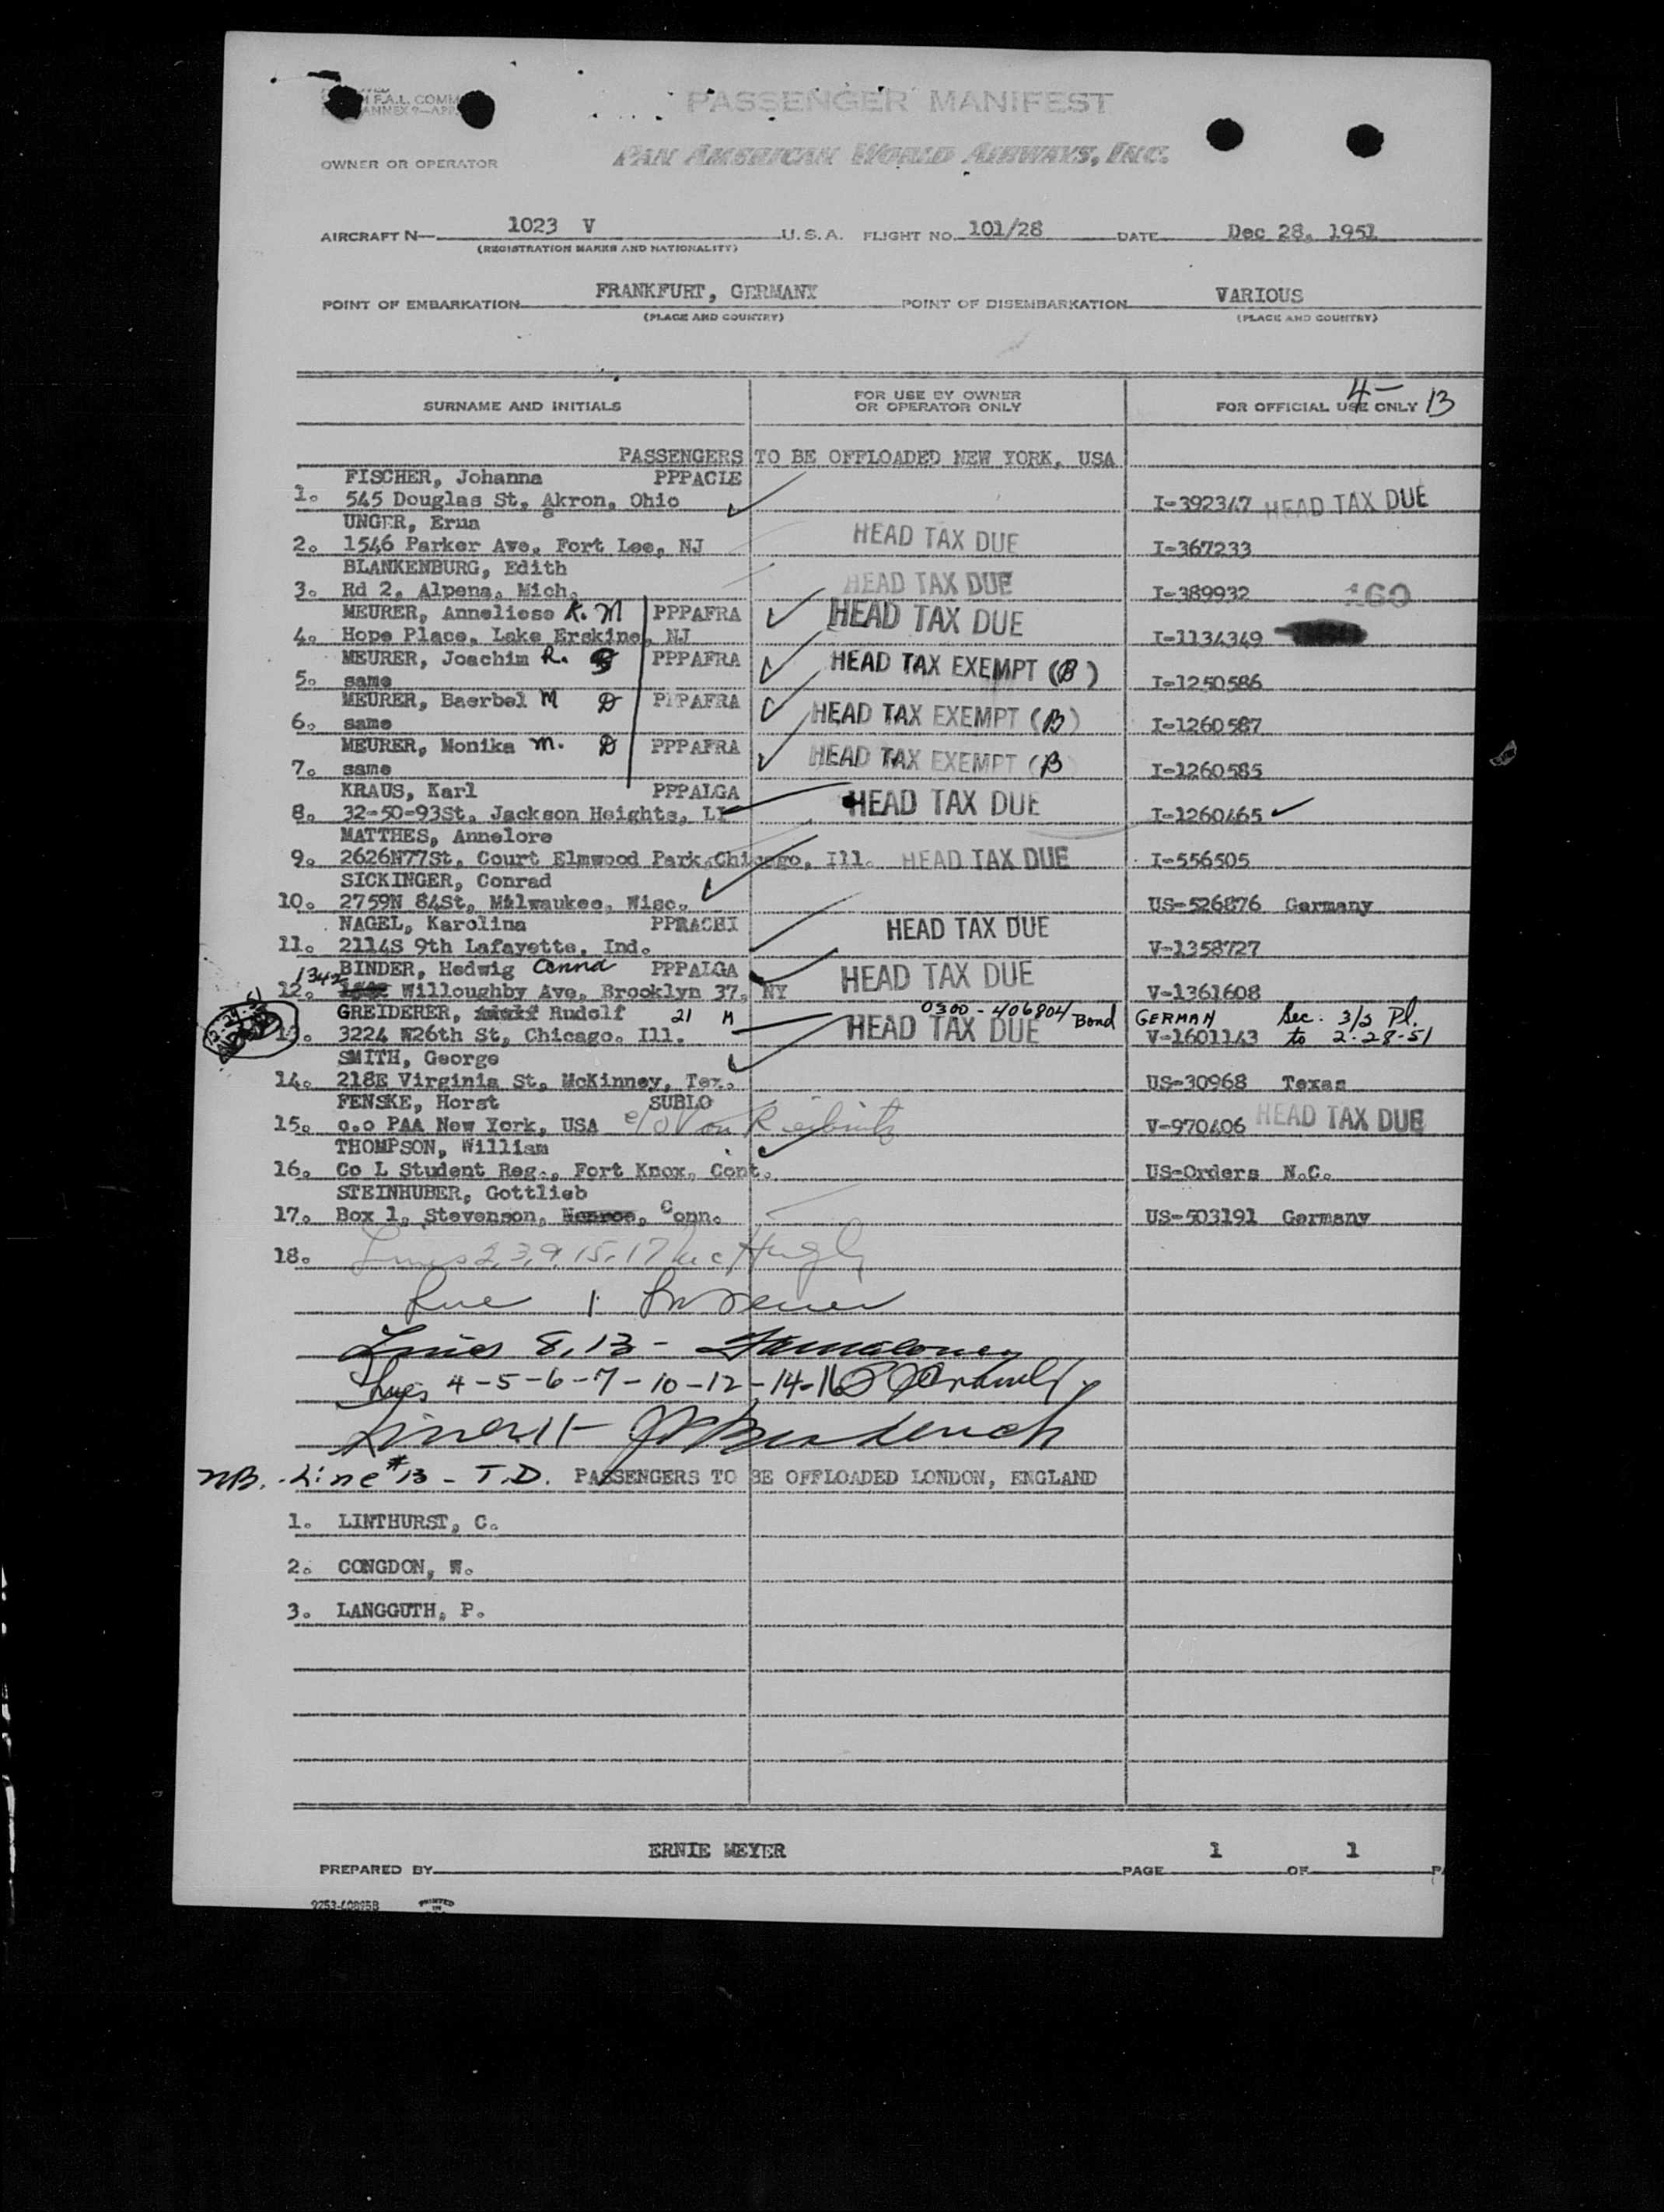 F.A.L. COMM
ANNEX 9—APR
PASSENGER MANIFEST
OWNER OR OPERATOR PAN AMERICAN WORLD AIRWAYS, INC.
AIRCRAFT N— 1023 V U.S.A. FLIGHT NO. 101/28 DATE Dec 28, 1951
(REGISTRATION MARKS AND NATIONALITY)
POINT OF EMBARKATION FRANKFURT, GERMANY POINT OF DISEMBARKATION VARIOUS
(PLACE AND COUNTRY) (PLACE AND COUNTRY)
SURNAME AND INITIALS FOR USE BY OWNER OR OPERATOR ONLY FOR OFFICIAL USE ONLY 4- 13
PASSENGERS TO BE OFFLOADED NEW YORK, USA
FISCHER, Johanna PPPACLE
1. 545 Douglas St, Akron, Ohio I-392347 HEAD TAX DUE
UNGER, Erna
2. 1546 Parker Ave, Fort Lee, NJ HEAD TAX DUE I-367233
BLANKENBURG, Edith
3. Rd 2, Alpena, Mich. HEAD TAX DUE I-389932 160
MEURER, Anneliese K. M PPPAFRA HEAD TAX DUE
4. Hope Place, Lake Erskine, NJ I-1134349
MEURER, Joachim R. PPPAFRA HEAD TAX EXEMPT (B)
5. same I-1250586
MEURER, Baerbel M D PPPAFRA HEAD TAX EXEMPT (B)
6. same I-1260587
MEURER, Monika M. D PPPAFRA HEAD TAX EXEMPT (B)
7. same I-1260585
KRAUS, Karl PPPALGA HEAD TAX DUE
8. 32-50-93St, Jackson Heights, LI I-1260465
MATTHES, Annelore
9. 2626N77St, Court Elmwood Park, Chicago, Ill. HEAD TAX DUE I-556505
SICKINGER, Conrad
10. 2759N 84St, Milwaukee, Wisc. US-526876 Germany
NAGEL, Karolina PPRACHI HEAD TAX DUE
11. 2114S 9th Lafayette, Ind. V-1358727
BINDER, Hedwig Anna PPPALGA HEAD TAX DUE
12. 1342 Willoughby Ave, Brooklyn 37, NY V-1361608
GREIDERER, Rudolf 21 M 0300-406804 Bond GERMAN Sec. 3/2 Pl.
13. 3224 W26th St, Chicago, Ill. HEAD TAX DUE V-1601143 to 2-28-51
SMITH, George
14. 218E Virginia St, McKinney, Tex. US-30968 Texas
FENSKE, Horst SUBLO
15. c.o PAA New York, USA c/o Von V-970406 HEAD TAX DUE
THOMPSON, William
16. Co L Student Reg., Fort Knox, Cont. US-Orders N.C.
STEINHUBER, Gottlieb
17. Box 1, Stevenson, Conn. US-503191 Germany
18. Lines 2, 3, 9, 15, 17
Line 1
Lines 8, 13 -
Lines 4-5-6-7-10-12-14-16
Line 11-
NB. Line #13 - T.D. PASSENGERS TO BE OFFLOADED LONDON, ENGLAND
1. LINTHURST, C.
2. CONGDON, W.
3. LANGGUTH, P.
PREPARED BY ERNIE MEYER PAGE 1 OF 1
PRINTED